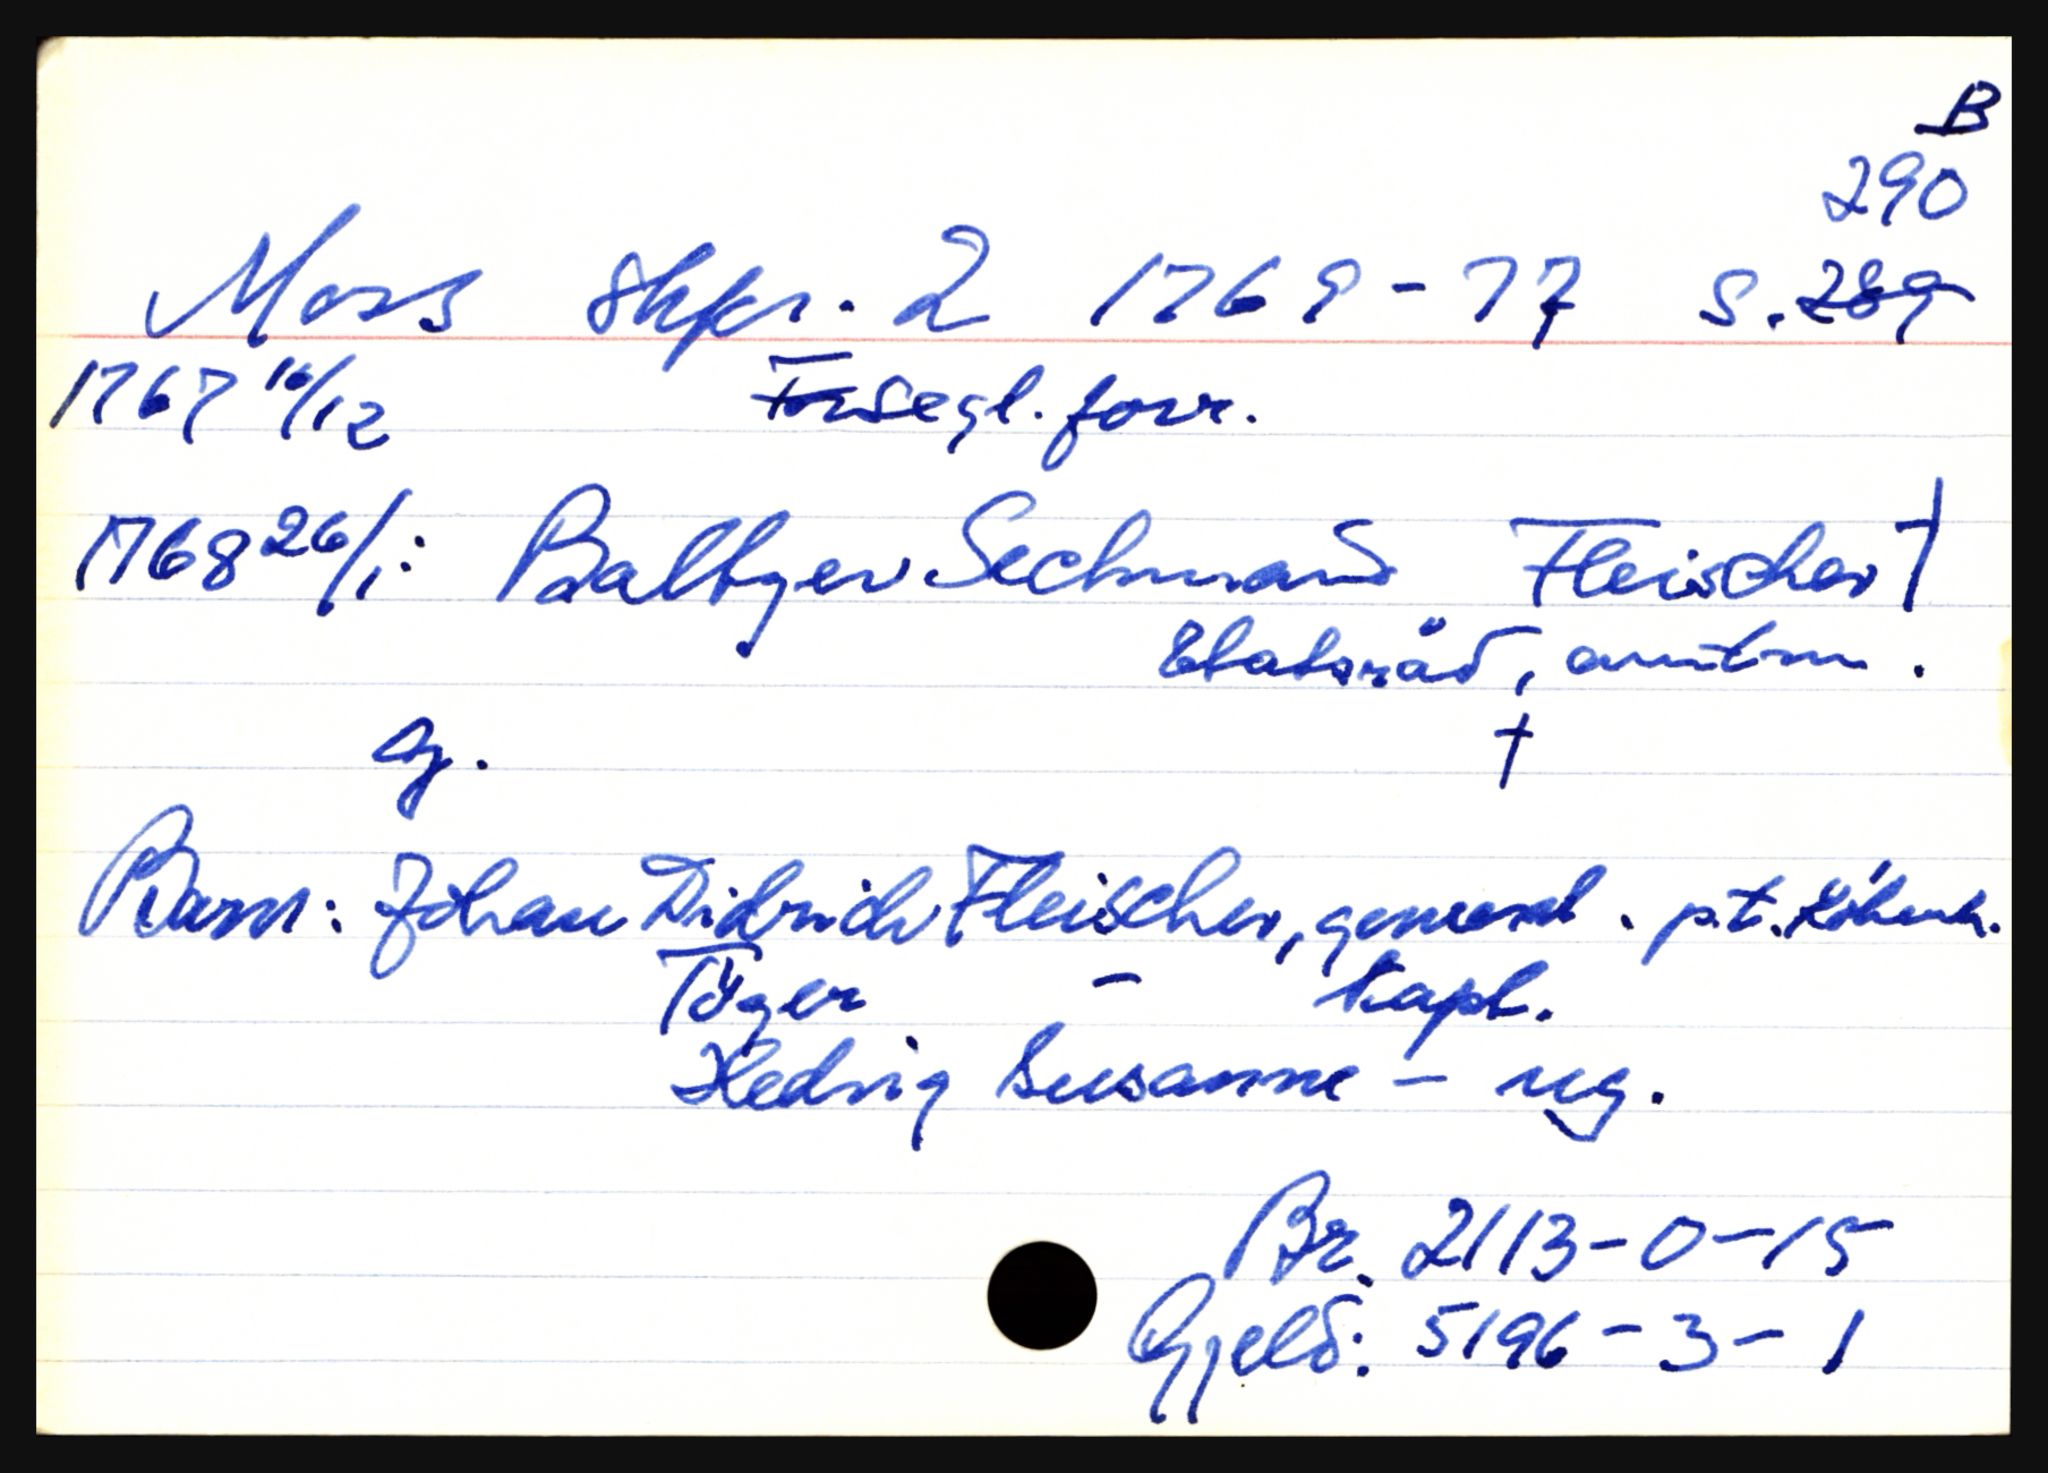 B
290
Moss skpr. 2 1769-77 S. 289
1767 16/12 Forsegl. forr.
1768 26/1: Baltzer Sechmand Fleischer †
Etatsråd, amtm.
g. †
Barn: Johan Didrich Fleischer, general. p.t. Köbenh.
Töger - kapt.
Hedvig Susanne - ug.
Br. 2113-0-15
Gjeld: 5196-3-1